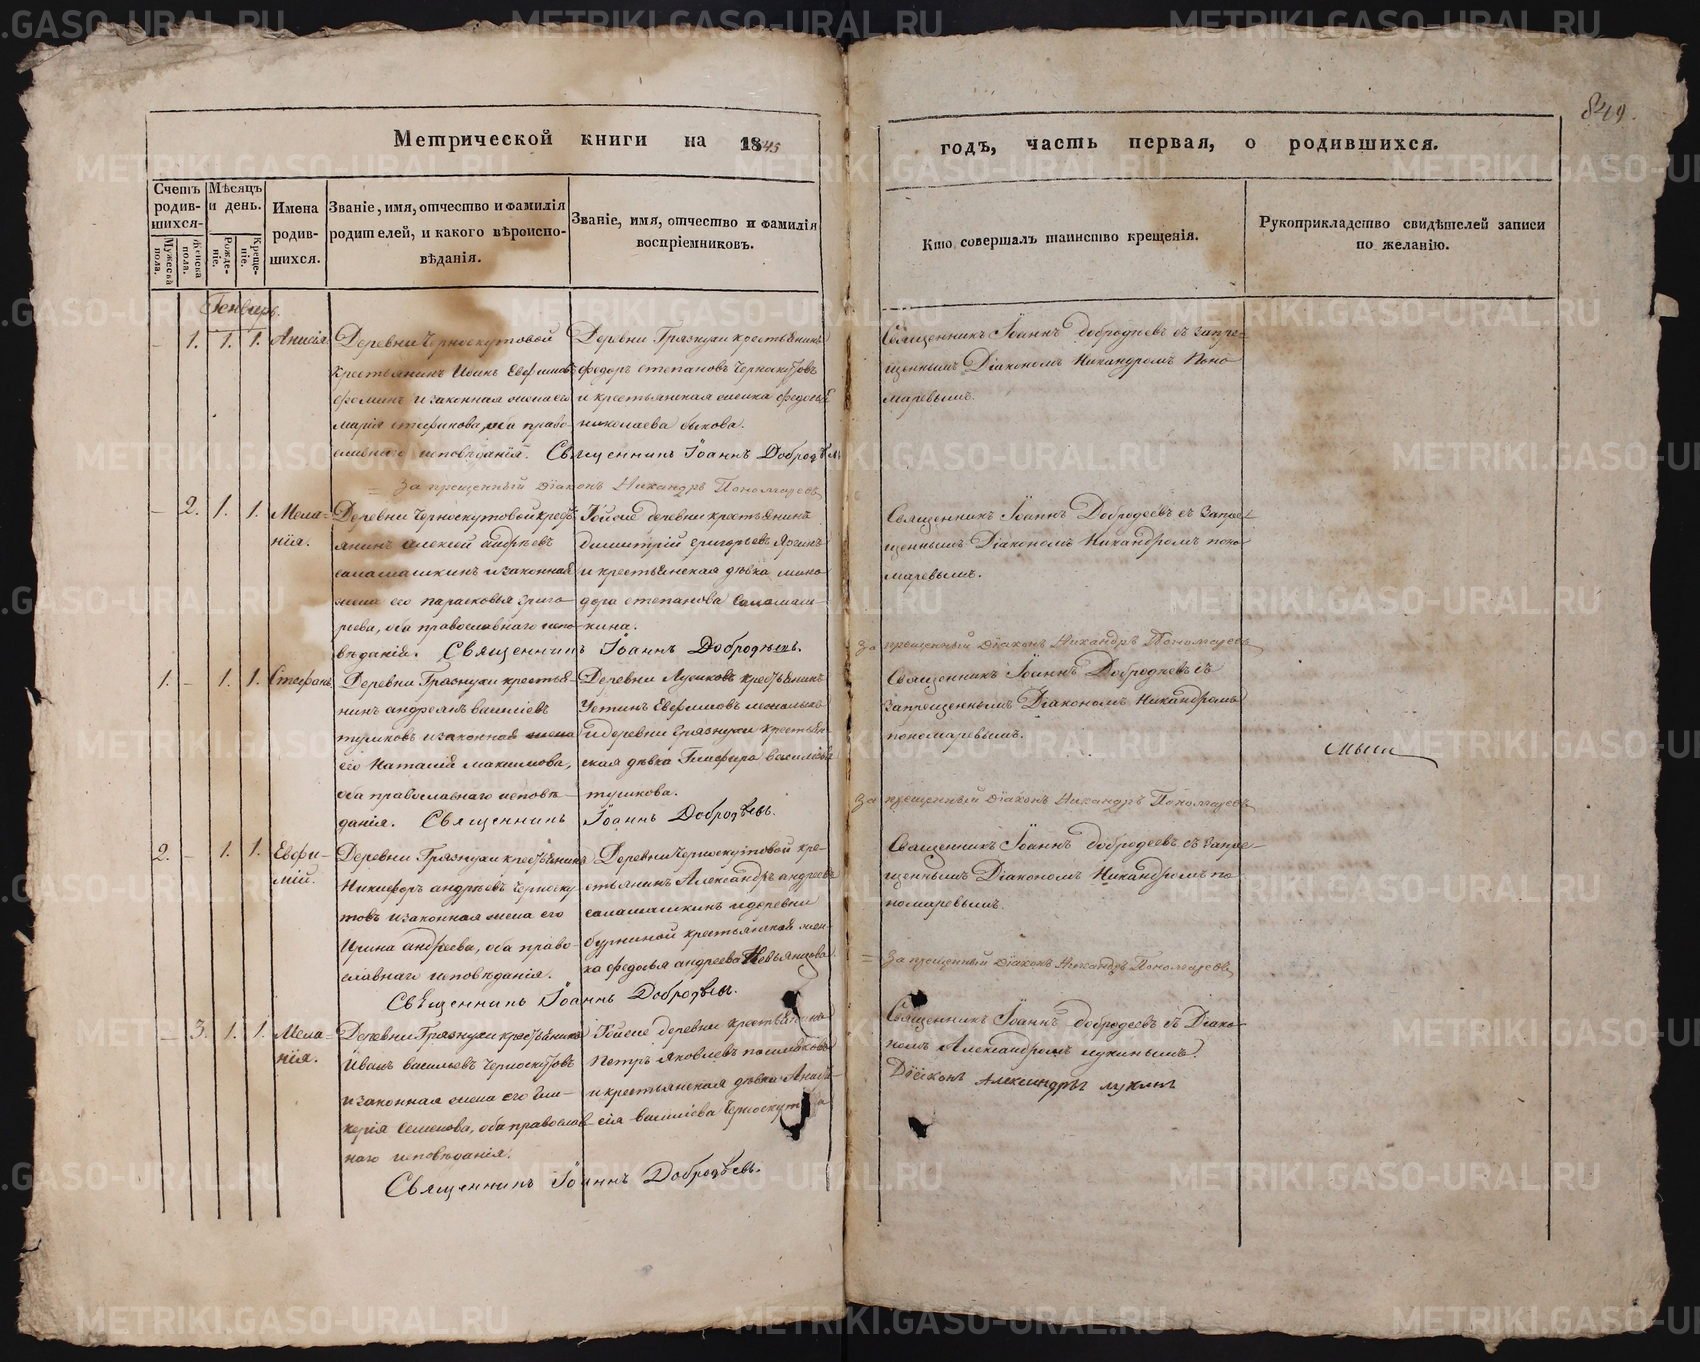 849.
Метрической книги на 1845
годъ, часть первая, о родившихся.
Счетъ родив-шихся.
Мужеска пола.
Женска пола.
Мѣсяцъ и день.
Рожде-ніе.
Креще-ніе.
Имена родив-шихся.
Званіе, имя, отчество и фамилія
родителей, и какого вѣроиспо-
вѣданія.
Званіе, имя, отчество и фамилія
воспріемниковъ.
Кто совершалъ таинство крещенія.
Рукоприкладство свидѣтелей записи
по желанію.
Генварь.
1. 1. 1. Анисія
Деревни Черноскутовой
крестьянинъ Евфимовъ
Фоминъ и законная жена его
Марія Стефанова, оба право-
славнаго исповѣданія.
Деревни Грязнухи крестьянинъ
Федоръ Степановъ Черноскутовъ
и крестьянская женка Федосья
Николаева Быкова.
Священникъ Іоаннъ Добродѣевъ
Запрещенный Діаконъ Никандръ Пономаревъ
Священникъ Іоаннъ Добродѣевъ съ запре-
щеннымъ Діакономъ Никандромъ Поно-
маревымъ.
2. 1. 1. Мела-
нія.
Деревни Черноскутовой кресть-
янинъ Алексей Андреевъ
Саламашкинъ и законная
жена его Парасковья Григо-
рьева, оба православнаго испо-
вѣданія.
Тойже деревни крестьянинъ
Димитрій Григорьевъ
и крестьянская дѣвка Мино-
дора Степанова Саламаш-
кина.
Священникъ Іоаннъ Добродѣевъ.
Священникъ Іоаннъ Добродѣевъ съ запре-
щеннымъ Діакономъ Никандромъ Поно-
маревымъ.
Запрещенный Діаконъ Никандръ Пономаревъ
1. 1. 1. Стефанъ
Деревни Грязнухи крестья-
нинъ Андреянъ Василіевъ
Тушковъ и законная жена
его Наталія Максимова,
оба православнаго исповѣ-
данія.
Деревни крестьянинъ
Устинъ Евфимовъ
и деревни Грязнухи крестьян-
ская дѣвка Глафира Василіева
Тушкова.
Священникъ Іоаннъ Добродѣевъ.
Священникъ Іоаннъ Добродѣевъ съ
запрещеннымъ Діакономъ Никандромъ
Пономаревымъ.
Запрещенный Діаконъ Никандръ Пономаревъ
2. 1. 1. Евфи-
мій.
Деревни Грязнухи крестьянинъ
Никифоръ Андреевъ Черноску-
товъ и законная жена его
Ирина Андреева, оба право-
славнаго исповѣданія.
Деревни Черноскутовой кре-
стьянинъ Александръ Андреевъ
Саламашкинъ и деревни
крестьянской жен-
ка Федосья Андреева
Священникъ Іоаннъ Добродѣевъ.
Священникъ Іоаннъ Добродѣевъ съ запре-
щеннымъ Діакономъ Никандромъ По-
номаревымъ.
Запрещенный Діаконъ Никандръ Пономаревъ
3. 1. 1. Мела-
нія.
Деревни Грязнухи крестьянинъ
Иванъ Васильевъ Черноскутовъ
и законная жена его Гли-
керія Семенова, оба православ-
наго исповѣданія.
Тойже деревни крестьянинъ
Петръ Яковлевъ
и крестьянская дѣвка
Василіева
Священникъ Іоаннъ Добродѣевъ.
Священникъ Іоаннъ Добродѣевъ съ Діако-
номъ Александромъ Лукинымъ.
Діаконъ Александръ Лукинъ
METRIKI.GASO-URAL.RU